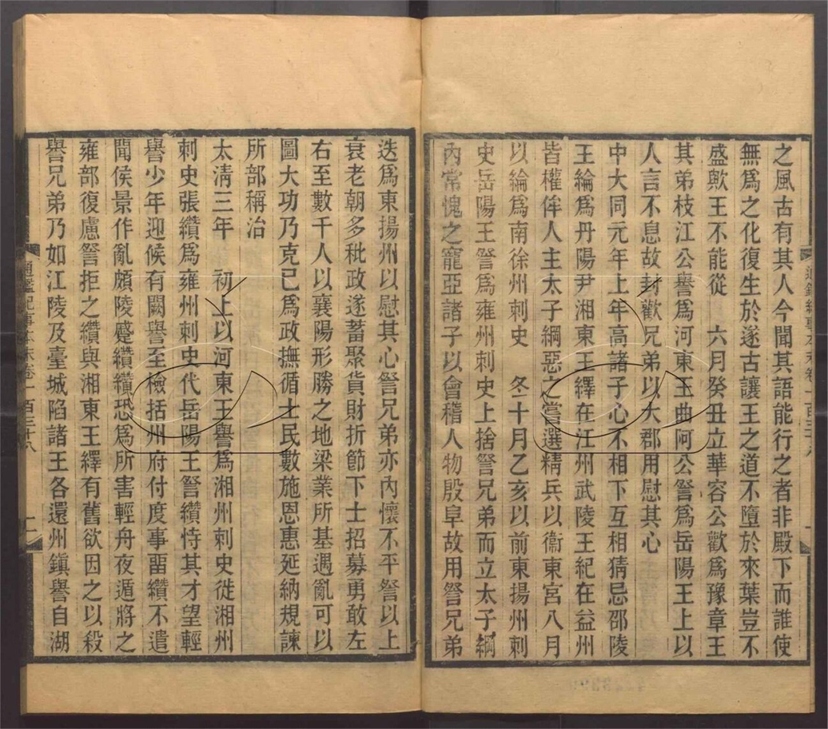 之風古有其人今聞其語能行之者非殿下而誰使
無爲之化復生於遂古讓王之道不墮於來葉豈不
盛歟王不能從　六月癸丑立華容公歡爲豫章王
其弟枝江公譽爲河東王曲阿公詧爲岳陽王上以
人言不息故封歡兄弟以大郡用慰其心
中大同元年上年高諸子心不相下互相猜忌邵陵
王綸爲丹陽尹湘東王繹在江州武陵王紀在益州
皆權侔人主太子綱惡之嘗選精兵以衞東宮八月
以綸爲南徐州刺史　冬十月乙亥以前東揚州刺
史岳陽王詧爲雍州刺史上捨詧兄弟而立太子綱
內常愧之寵亞諸子以會稽人物殷阜故用詧兄弟
通鑑紀事本末卷一百三十八
迭爲東揚州以慰其心詧兄弟亦內懷不平詧以上
衰老朝多秕政遂蓄聚貨財折節下士招募勇敢左
右至數千人以襄陽形勝之地梁業所基遇亂可以
圖大功乃克己爲政撫循士民數施恩惠延納規諫
所部稱治
太清三年　初上以河東王譽爲湘州刺史徙湘州
刺史張纘爲雍州刺史代岳陽王詧纘恃其才望輕
譽少年迎候有闕譽至檢括州府付度事畱纘不遣
聞侯景作亂頗陵蹙纘纘恐爲所害輕舟夜遁將之
雍部復慮詧拒之纘與湘東王繹有舊欲因之以殺
譽兄弟乃如江陵及臺城陷諸王各還州鎮譽自湖
通鑑紀事本末卷一百三十八